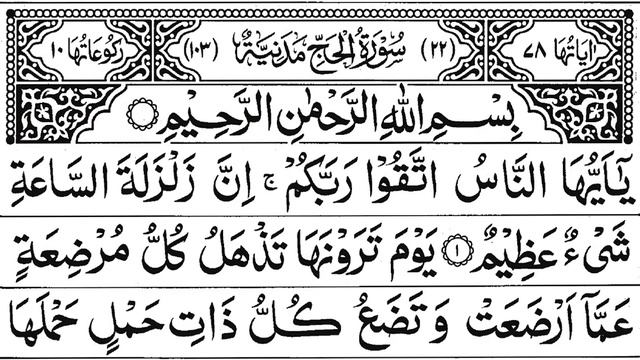 اٰیاتها ٧٨ (٢٢) سُوْرَةُ الْحَجِّ مَدَنِيَّةٌ (١٠٣) رکوعاتها ١٠
بِسْمِ اللهِ الرَّحْمٰنِ الرَّحِيْمِ
يٰۤاَيُّهَا النَّاسُ اتَّقُوْا رَبَّكُمْ ۚ اِنَّ زَلْزَلَةَ السَّاعَةِ
شَيْءٌ عَظِيْمٌ ١ يَوْمَ تَرَوْنَهَا تَذْهَلُ كُلُّ مُرْضِعَةٍ
عَمَّاۤ اَرْضَعَتْ وَتَضَعُ كُلُّ ذَاتِ حَمْلٍ حَمْلَهَا